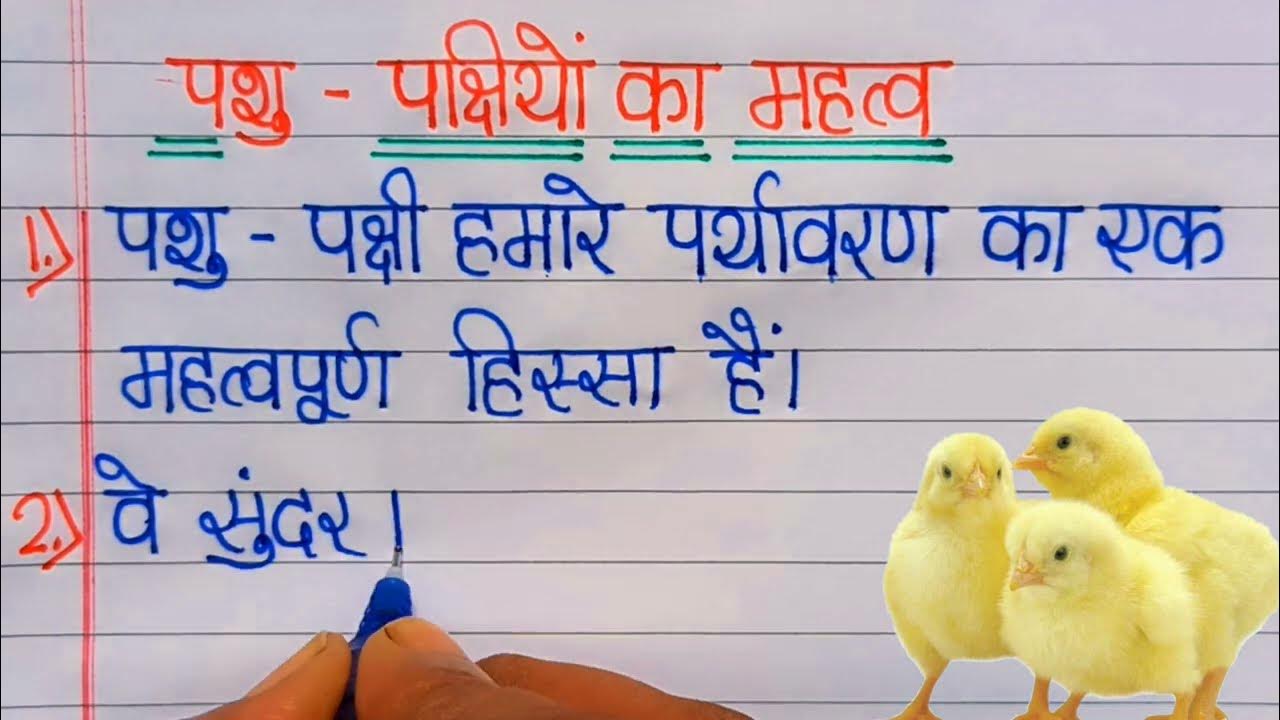 पशु - पक्षियों का महत्व
1.) पशु - पक्षी हमारे पर्यावरण का एक
महत्वपूर्ण हिस्सा हैं।
2.) वे सुंदर ।